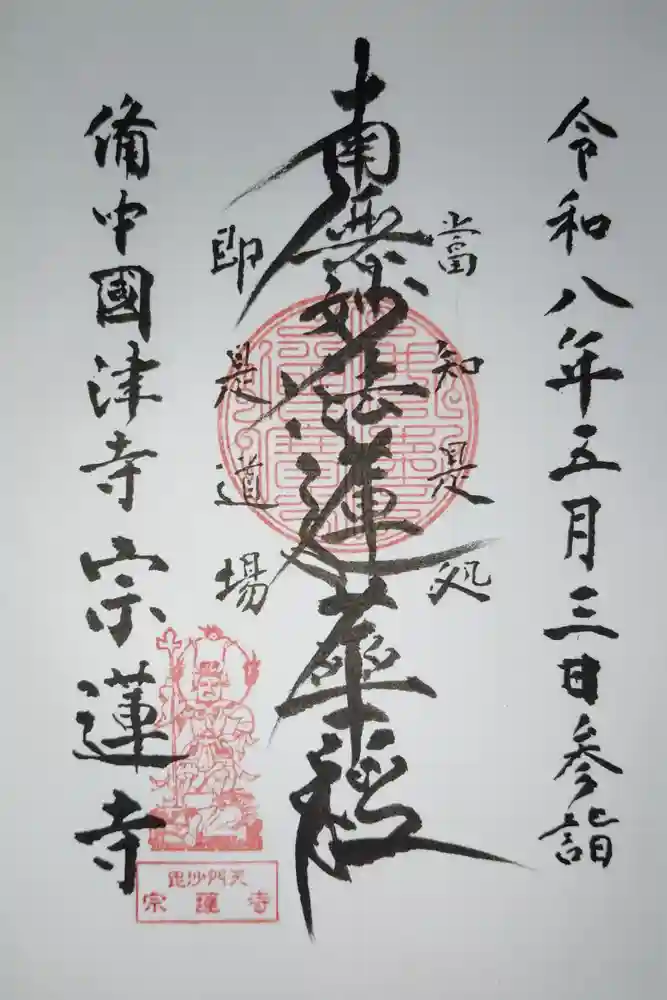 令和八年五月三日参詣
當知是処
南無妙法蓮華経
即是道場
備中國津寺宗蓮寺
毘沙門天
宗蓮寺